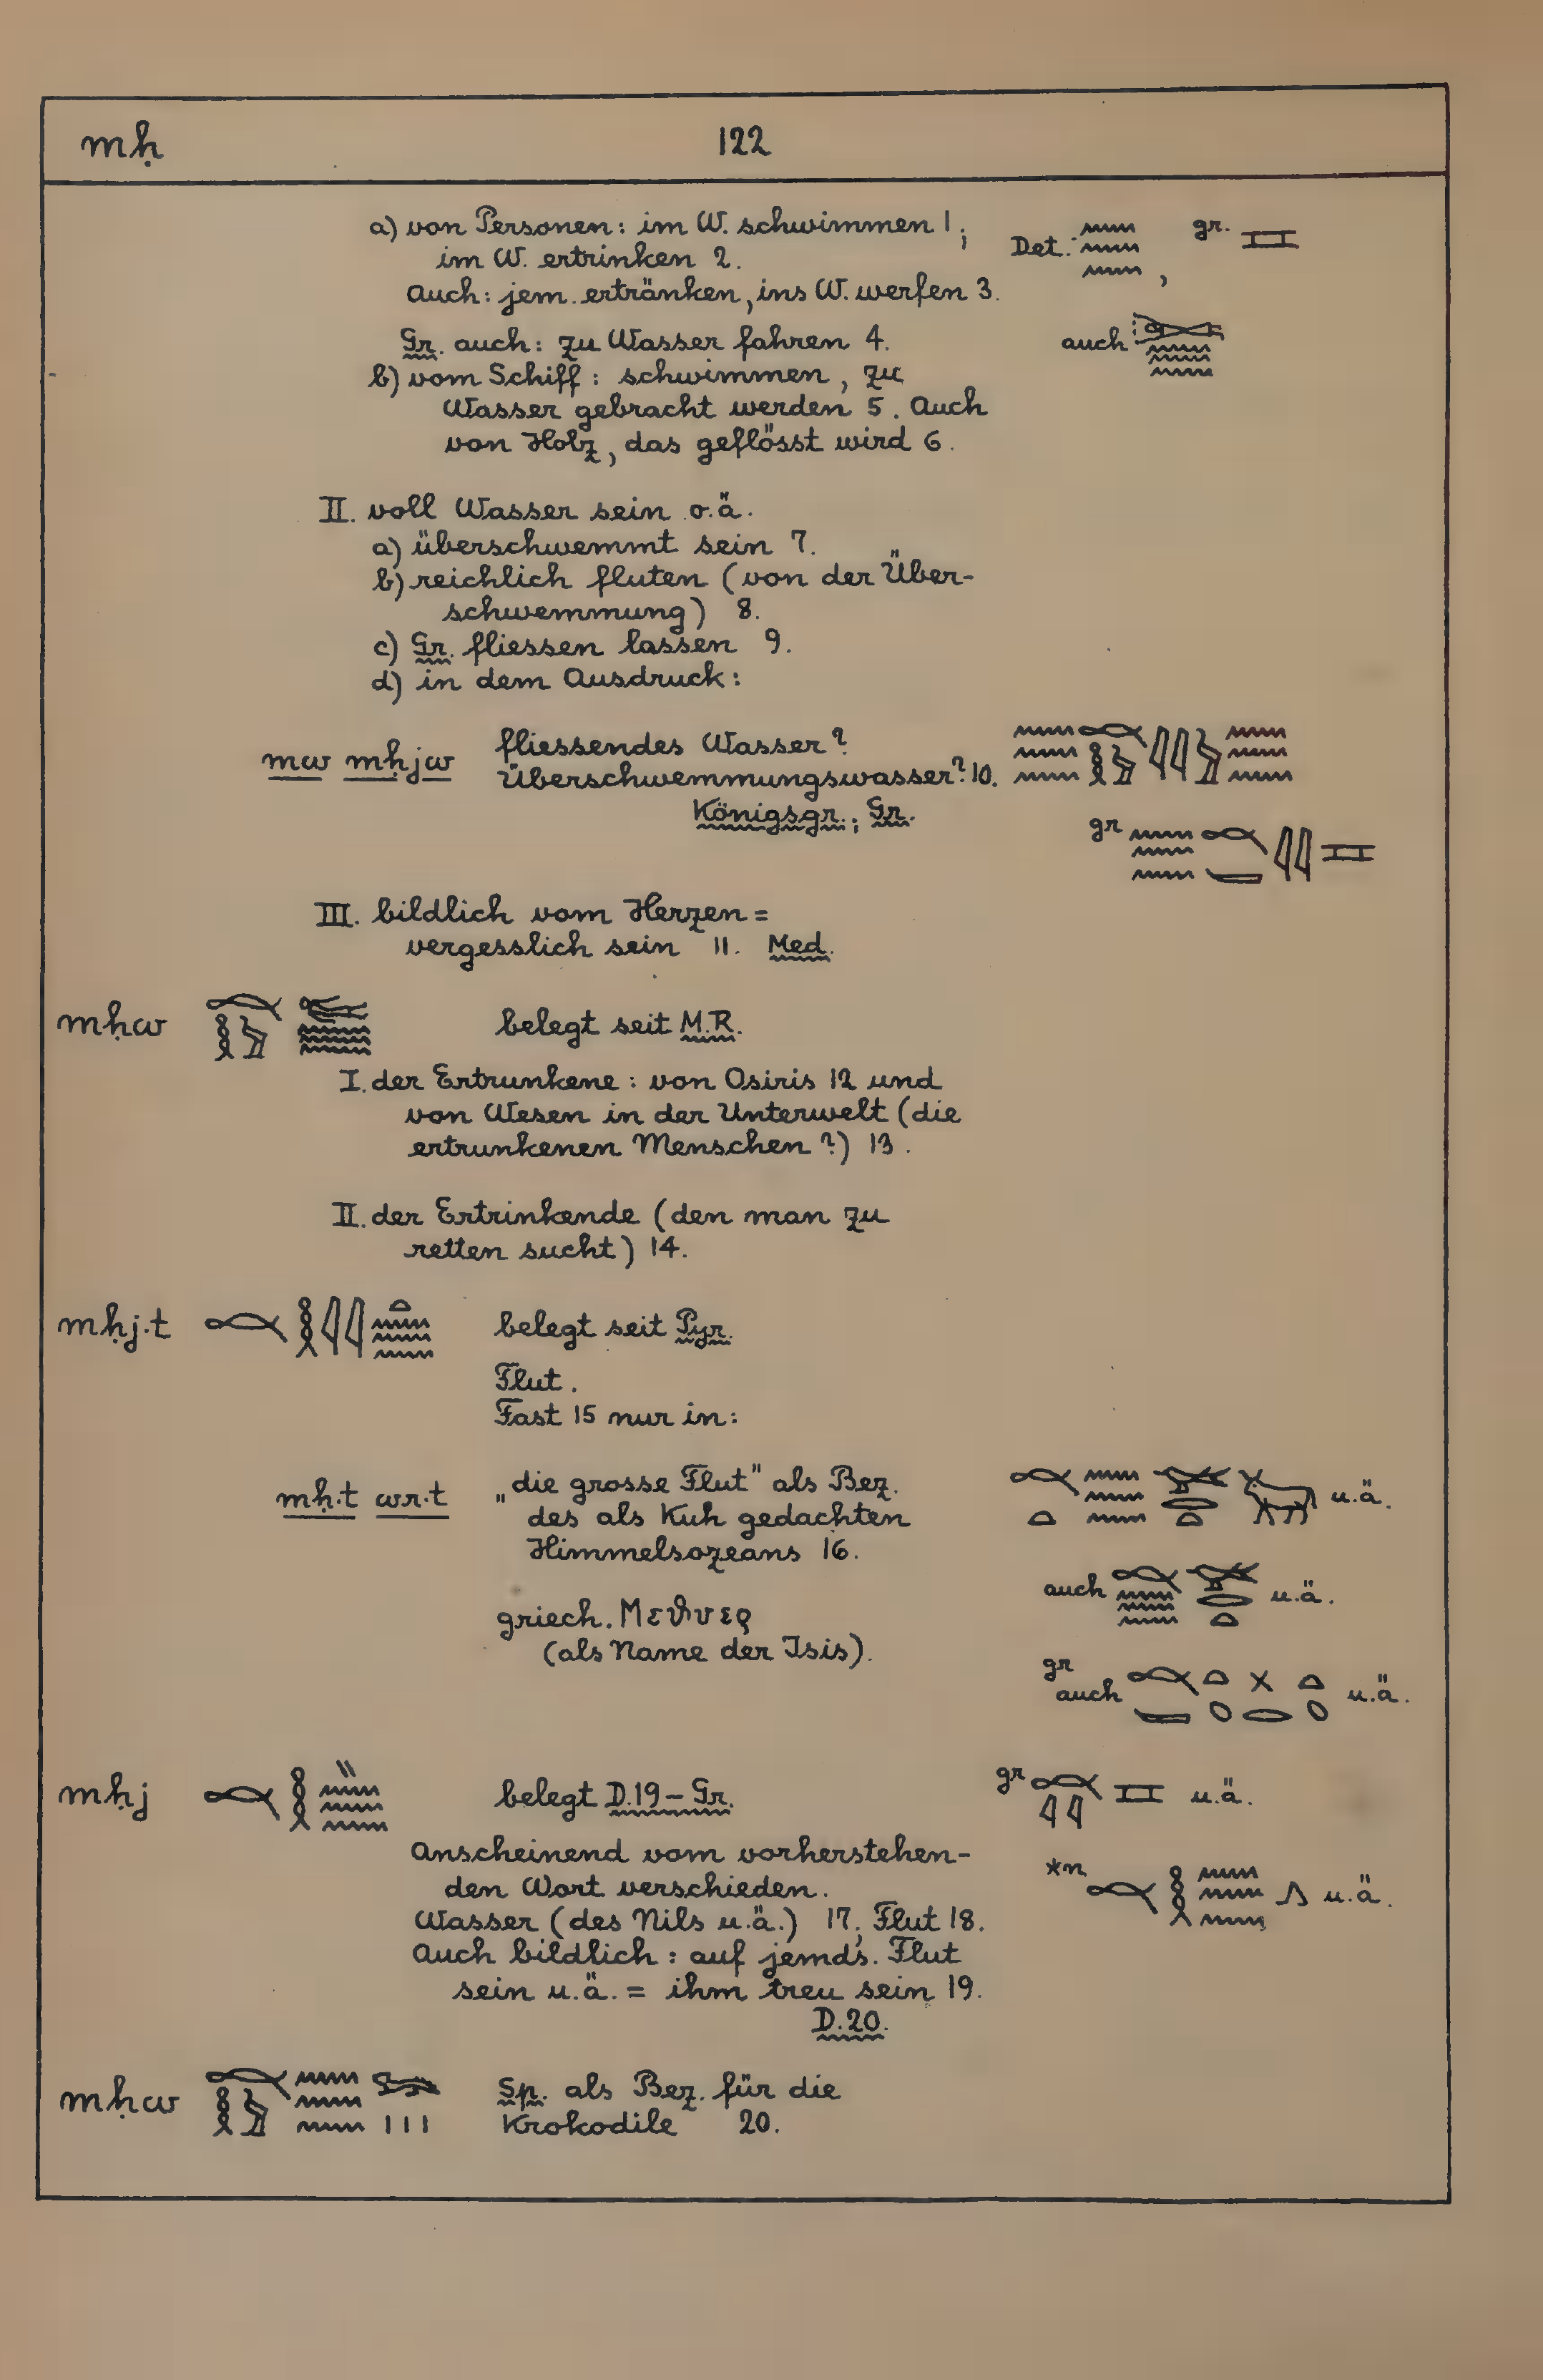 mḥ 122
a) von Personen: im W. schwimmen 1; Det. , gr.
im W. ertrinken 2.
Auch: jem. ertränken, ins W. werfen 3.
Gr. auch: zu Wasser fahren 4. auch
b) vom Schiff: schwimmen, zu
Wasser gebracht werden 5. Auch
von Holz, das geflösst wird 6.
II. voll Wasser sein o.ä.
a) überschwemmt sein 7.
b) reichlich fluten (von der Über-
schwemmung) 8.
c) Gr. fliessen lassen 9.
d) in dem Ausdruck:
mw mḥjw fliessendes Wasser?
Überschwemmungswasser? 10.
Königsgr.; Gr.
gr
III. bildlich vom Herzen =
vergesslich sein 11. Med.
mḥw belegt seit M.R.
I. der Ertrunkene: von Osiris 12 und
von Wesen in der Unterwelt (die
ertrunkenen Menschen?) 13.
II. der Ertrinkende (den man zu
retten sucht) 14.
mḥj.t belegt seit Pyr.
Flut.
Fast 15 nur in:
mḥ.t wr.t „die grosse Flut" als Bez. u.ä.
des als Kuh gedachten
Himmelsozeans 16.
auch u.ä.
griech. Μεθυερ
(als Name der Isis).
gr
auch u.ä.
mḥj belegt D.19 – Gr. gr u.ä.
Anscheinend vom vorherstehen-
den Wort verschieden. *n u.ä.
Wasser (des Nils u.ä.) 17; Flut 18.
Auch bildlich: auf jemds. Flut
sein u.ä. = ihm treu sein 19.
D.20.
mḥw Sp. als Bez. für die
Krokodile 20.